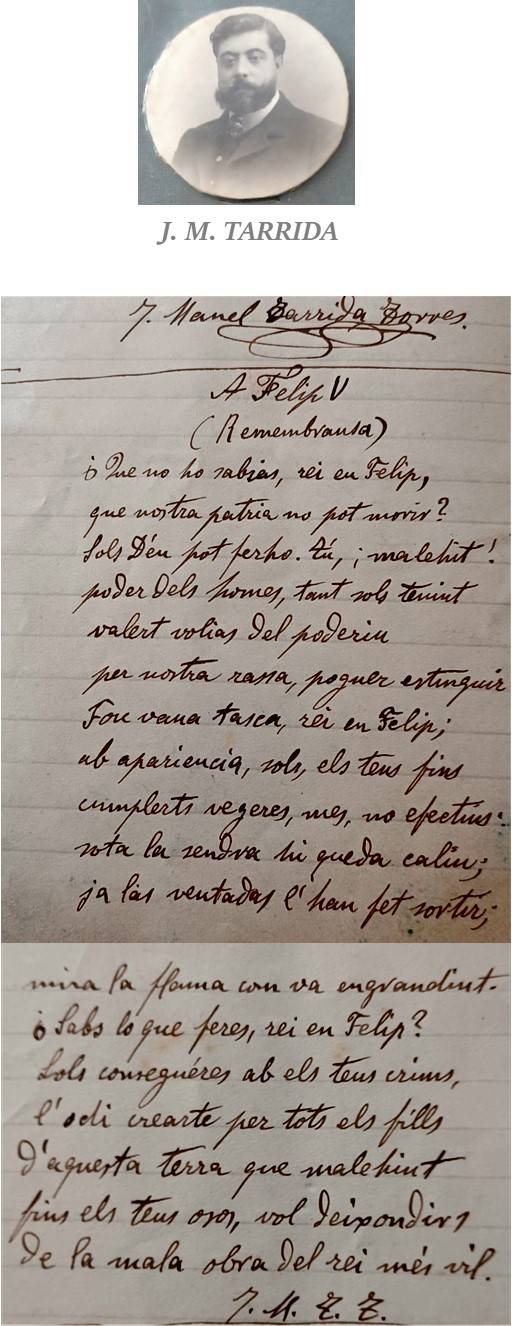 J. M. TARRIDA
J. Manel Tarrida Torres.
A Felip V
(Remembransa)
¿Que no ho sabias, rei en Felip,
que nostra patria no pot morir?
Sols Déu pot ferho. Tú, ¡malehit!
poder dels homes, tant sols tenint
valert volias del poderiu
per nostra rassa, poguer estinguir
Fou vana tasca, rei en Felip;
ab apariencia, sols, els teus fins
cumplerts vegeres, mes, no efectius:
sota la sendra hi queda caliu;
ja las ventadas l'han fet sortir;
mira la flama com va engrandint.
¿Sabs lo que feres, rei en Felip?
Sols conseguéres ab els teus crims,
l'odi crearte per tots els fills
d'aquesta terra que malehint
fins els teus osos, vol deixondirs
de la mala obra del rei més vil.
J. M. T. T.